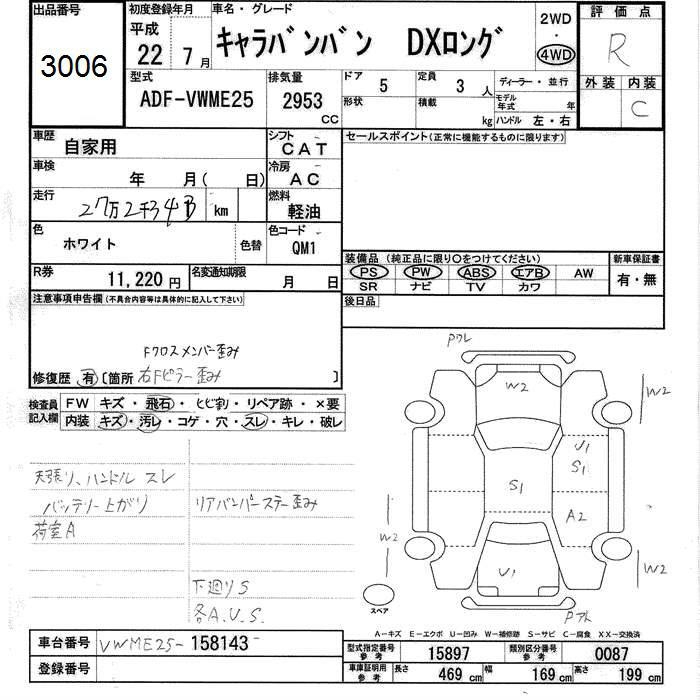 出品番号
3006
初度登録年月
平成
22年 7月
車名・グレード
キャラバンバン DXロング
2WD
・
4WD
評価点
R
外装 内装
C
型式
ADF-VWME25
排気量
2953
CC
ドア 5
形状
定員 3 人
積載 kg
ディーラー・並行
モデル年式 年
ハンドル 左・右
車歴
自家用
シフト
CAT
車検
年 月( 日)
冷房
AC
走行
km
燃料
軽油
色
ホワイト
色替
色コード
QM1
R券
11,220 円
名変通知期限
月 日
セールスポイント(正常に機能するものに限ります)
装備品(純正品に限り○をつけてください)
PS PW ABS エアB AW
SR ナビ TV カワ
新車保証書
有・無
後日品
注意事項申告欄(不具合内容等は具体的に記入して下さい)
Fクロスメンバー歪み
修復歴 有 〔箇所 右Fピラー歪み 〕
検査員記入欄
FW キズ・飛石・ヒビ割・リペア跡・×要
内装 キズ・汚レ・コゲ・穴・スレ・キレ・破レ
天張り、ハンドル スレ
バッテリー上がり
荷室A
リアバンパーステー歪み
下廻りS
各A.U.S.
Pワレ
W2
W2
U1
S1
S1
A2
W2
U1
W2
スペア
Pアト
A−キズ E−エクボ U−凹み W−補修跡 S−サビ C−腐食 XX−交換済
車台番号
VWME25-158143
登録番号
型式指定番号 参考
15897
類別区分番号 参考
0087
車庫証明用 参考
長さ 469 cm
幅 169 cm
高さ 199 cm